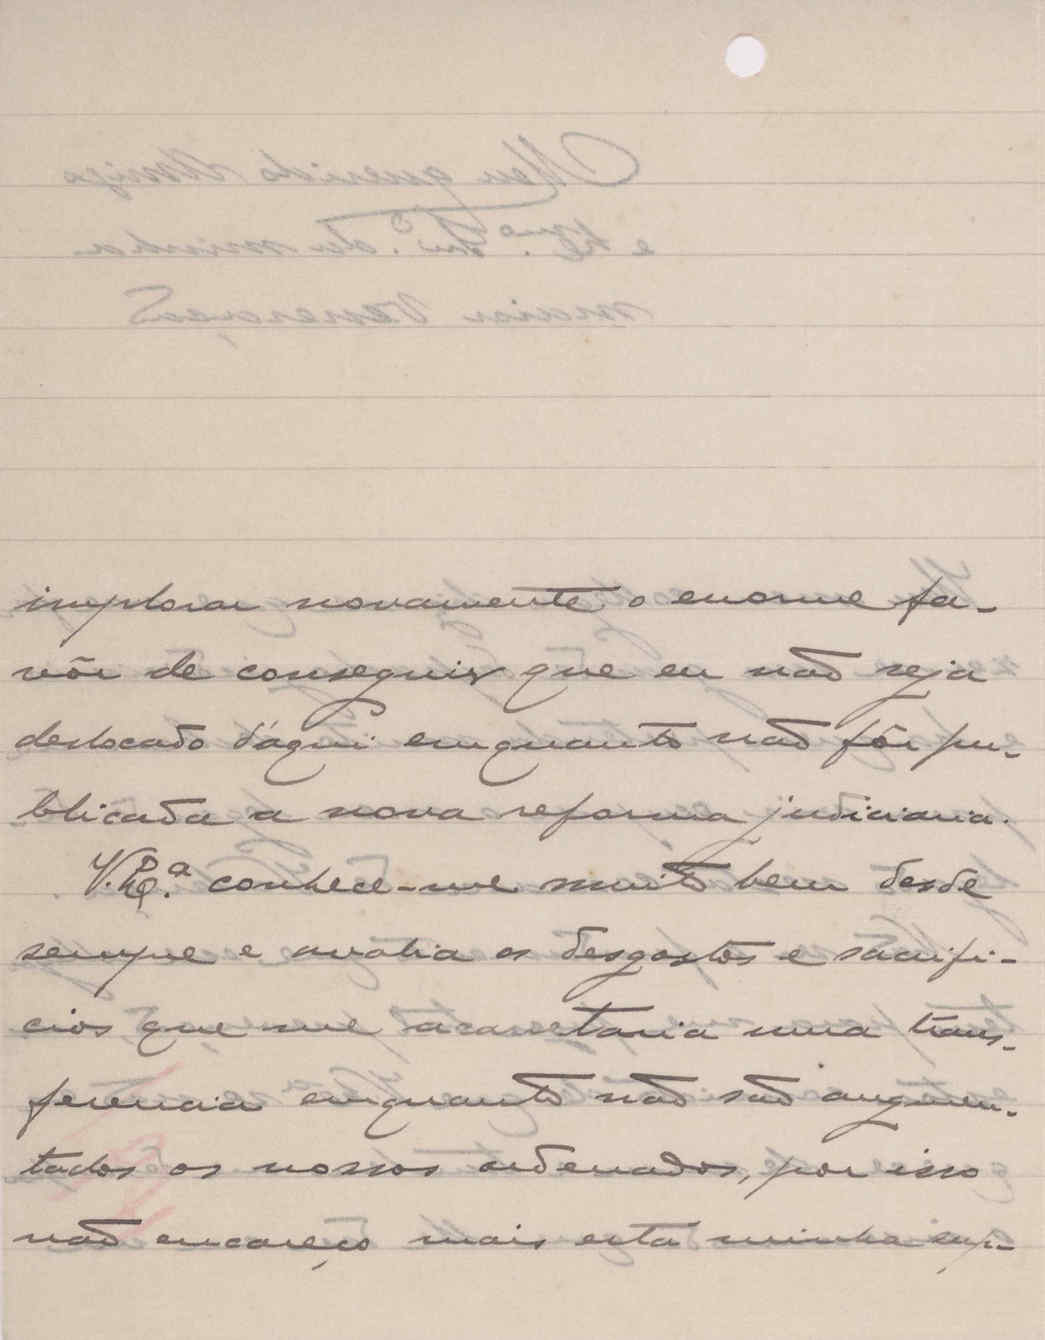 implorar novamente o enorme fa-
vôr de conseguir que eu não seja
deslocado d'aqui emquanto não fôr pu-
blicada a nova reforma judiciaria.
V. Ex.ª conhece-me muito bem desde
sempre e avalia os desgostos e sacrifi-
cios que me acarretaria uma trans-
ferencia emquanto não são augmen-
tados os nossos ordenados, por isso
não encareço mais esta minha sup-